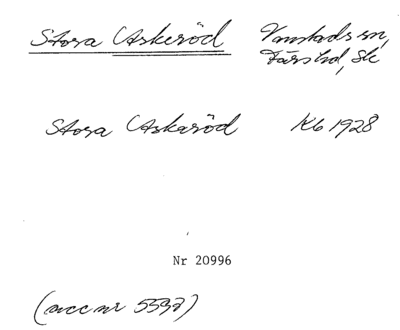 Stora Askeröd Vanstads sn,
Färs hd, Sk
Stora Askaröd Kb 1928
Nr 20996
(acc nr 5598)